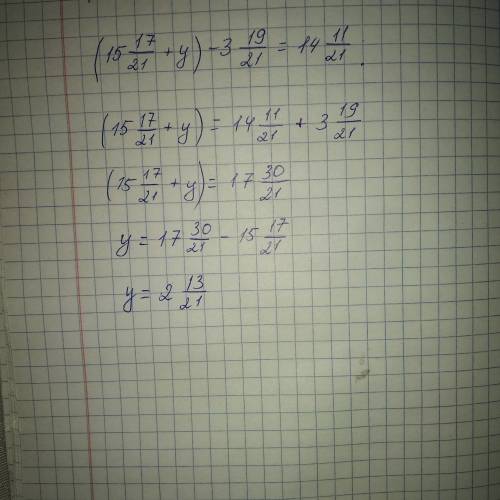 (15 17/21 + y) - 3 19/21 = 14 11/21;
(15 17/21 + y) = 14 11/21 + 3 19/21
(15 17/21 + y) = 17 30/21
y = 17 30/21 - 15 17/21
y = 2 13/21